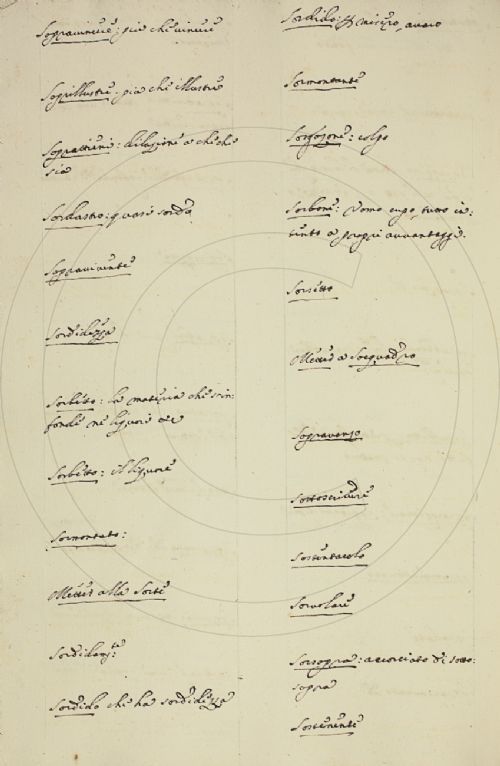 Sopravincere: più che vincere
Soprillustre. più che illustre
Soprattieni: dilazione a chi che
sia
Sordastro: quasi sordo
Sopravivente
Sordidezza
Sorbetto: la materia che s'in-
fonde ne liquori
Sorbetto: il liquore
Sormontato:
Mettere alla Sorte
Sordidam:te
Sordido che ha sordidezza
Sordido: misero, avaro
Sormontante
Sorgozone: colpo
Sorbone: Uomo cupo, tutto in-
tento a proprj avvantaggi.
Sorsetto
Mettere a Soqquadro
Sopraverso
Sottoscrivere
Sostentacolo
Sorvolare
Sossopra: accorciato di sotto-
sopra
Sostenente